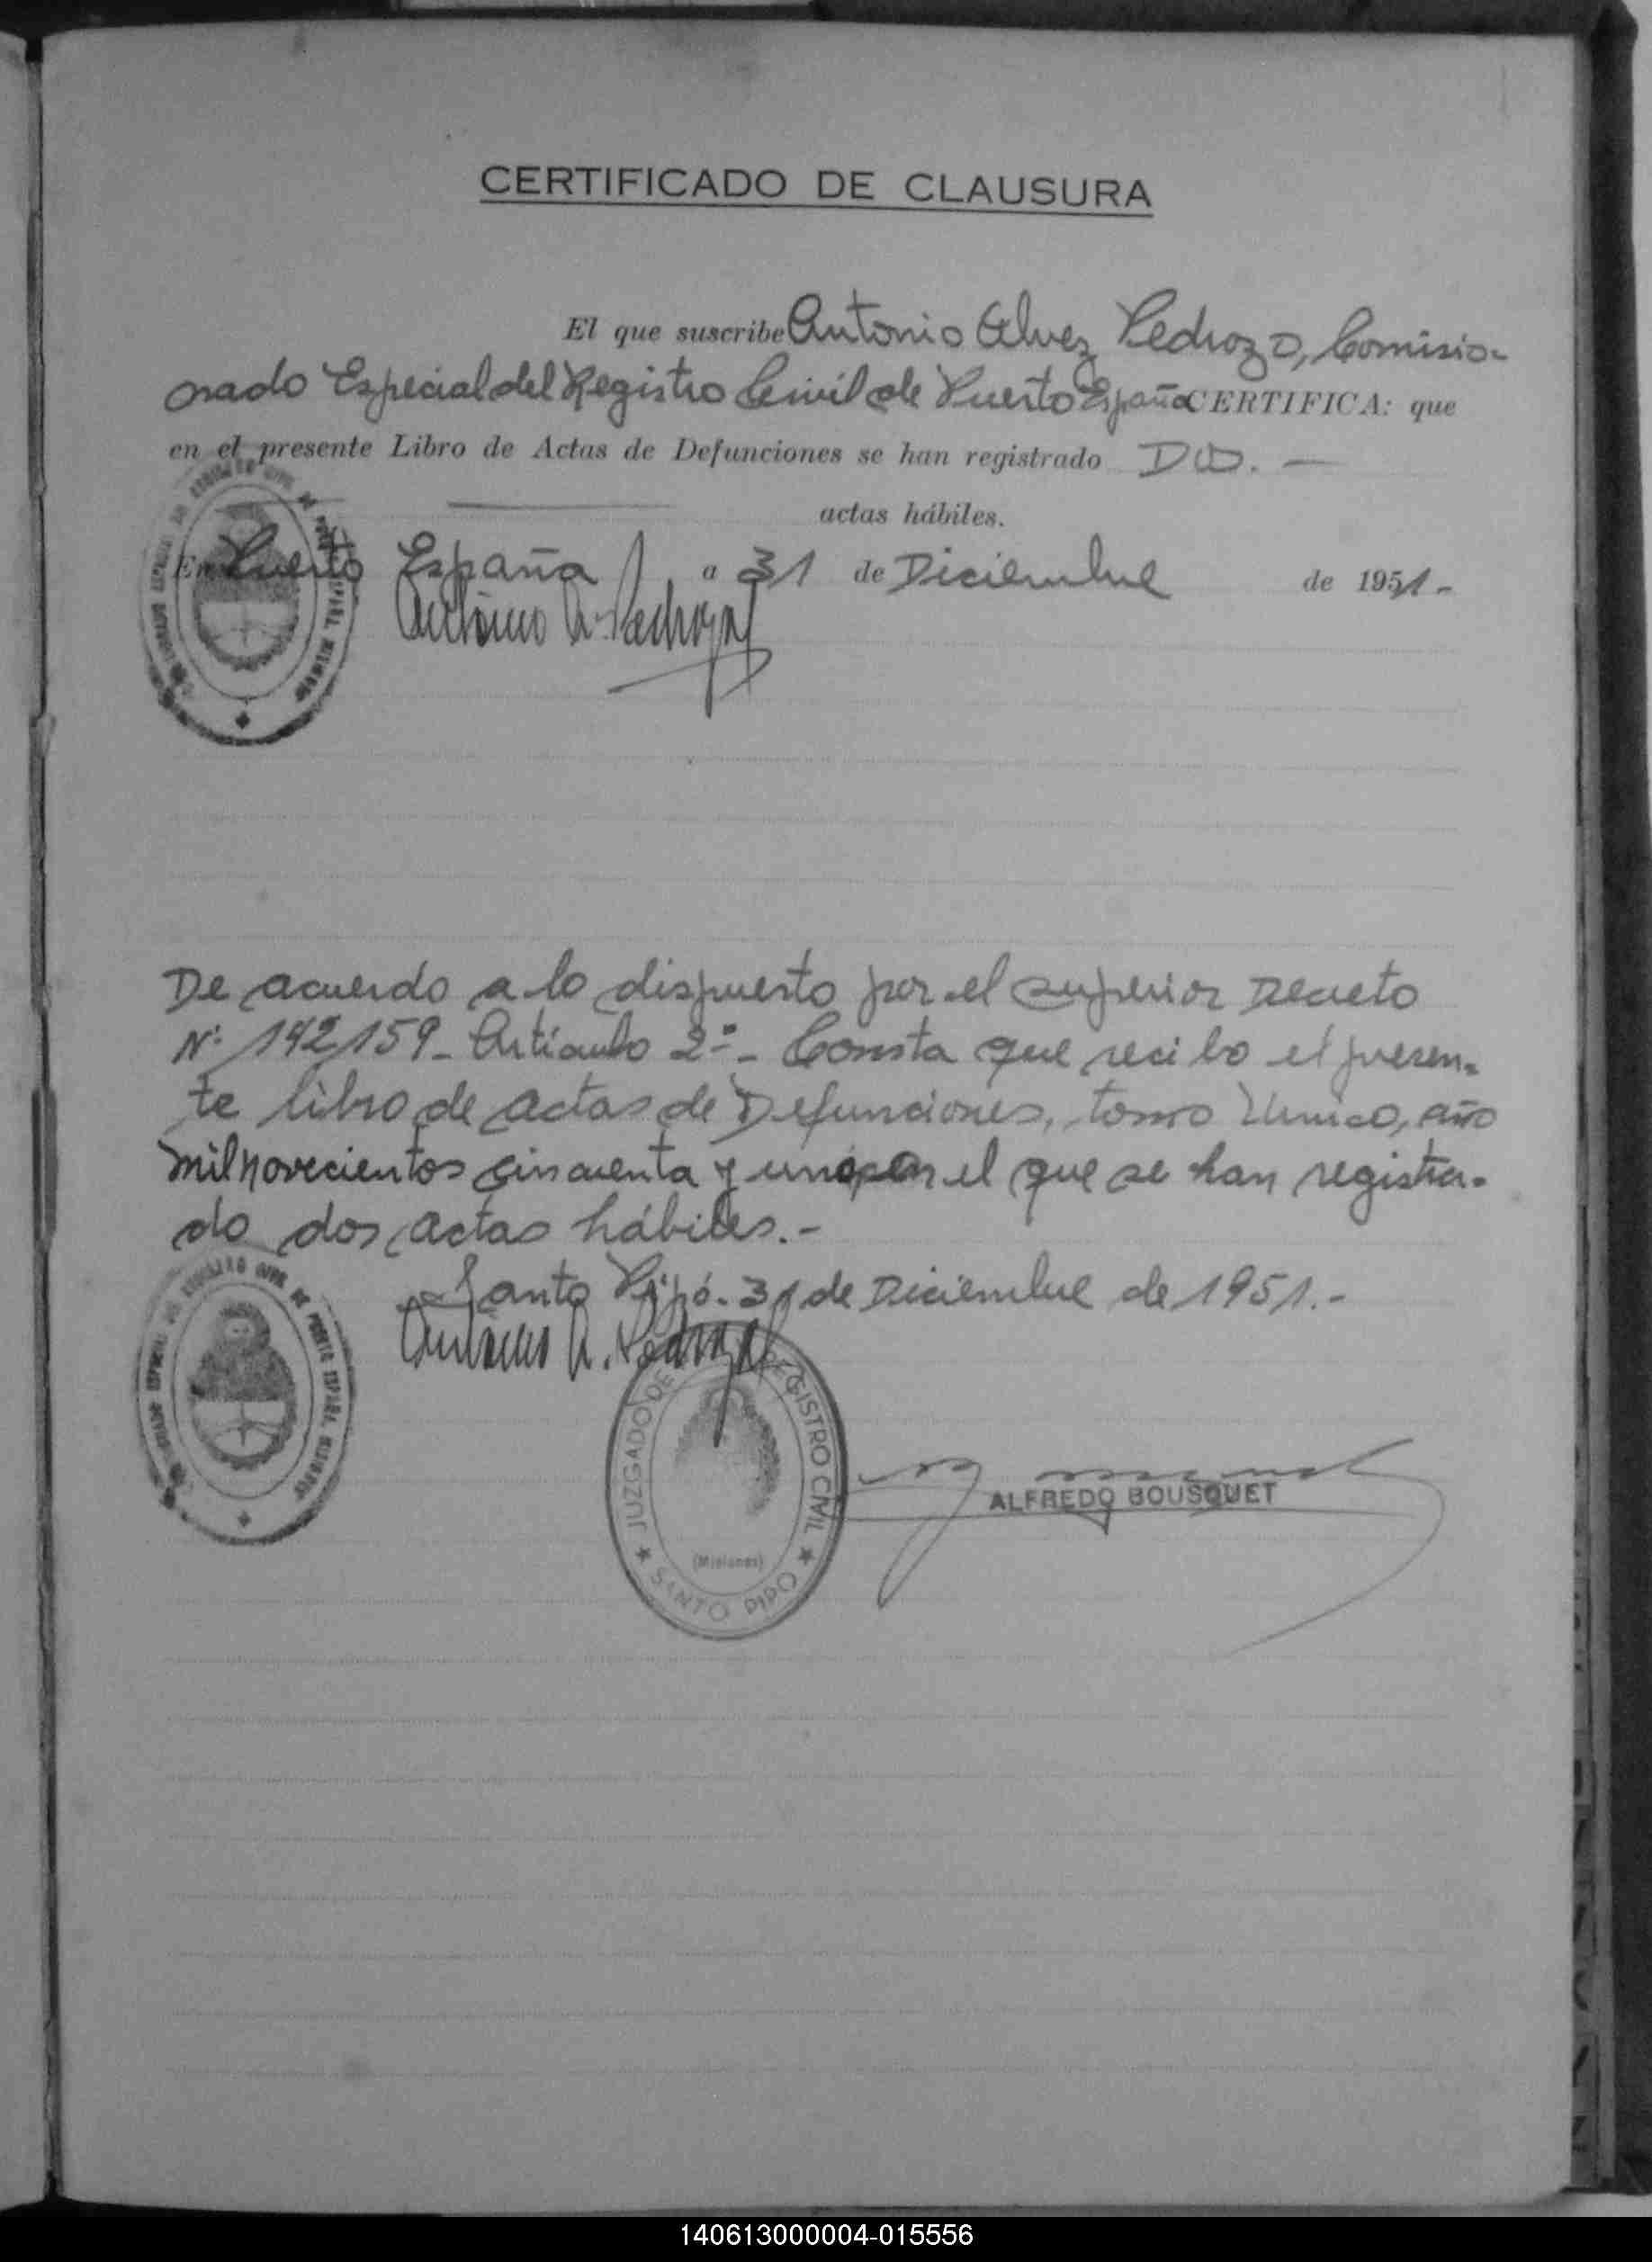 CERTIFICADO DE CLAUSURA
El que suscribe Antonio Alvez Pedrozo, Comisio-
nado Especial del Registro Civil de Puerto España CERTIFICA: que
en el presente Libro de Actas de Defunciones se han registrado DOS. —
actas hábiles.
En Puerto España, a 31 de Diciembre de 1951.-
Antonio A. Pedrozo
De acuerdo a lo dispuesto por el superior Decreto
Nº 142159_ Artículo 2º_ Consta que recibo el presen-
te libro de actas de Defunciones, tomo Unico, año
mil novecientos cincuenta y uno, en el que se han registra-
do dos actas hábiles.-
Santo Pipó. 31 de Diciembre de 1951.-
Antonio A. Pedrozo
JUZGADO DE REGISTRO CIVIL
(Misiones)
SANTO PIPO
ALFREDO BOUSQUET
140613000004-015556